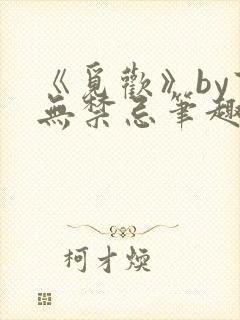 《覓歡》by
無禁忌筆趣
柯才煐